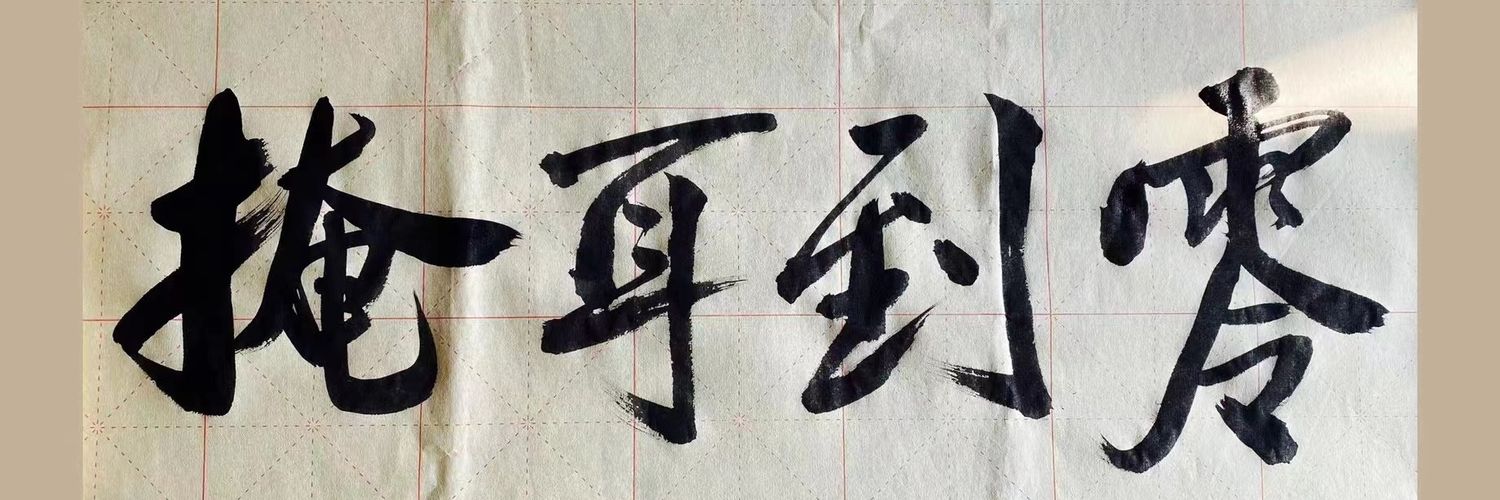 掩耳到零